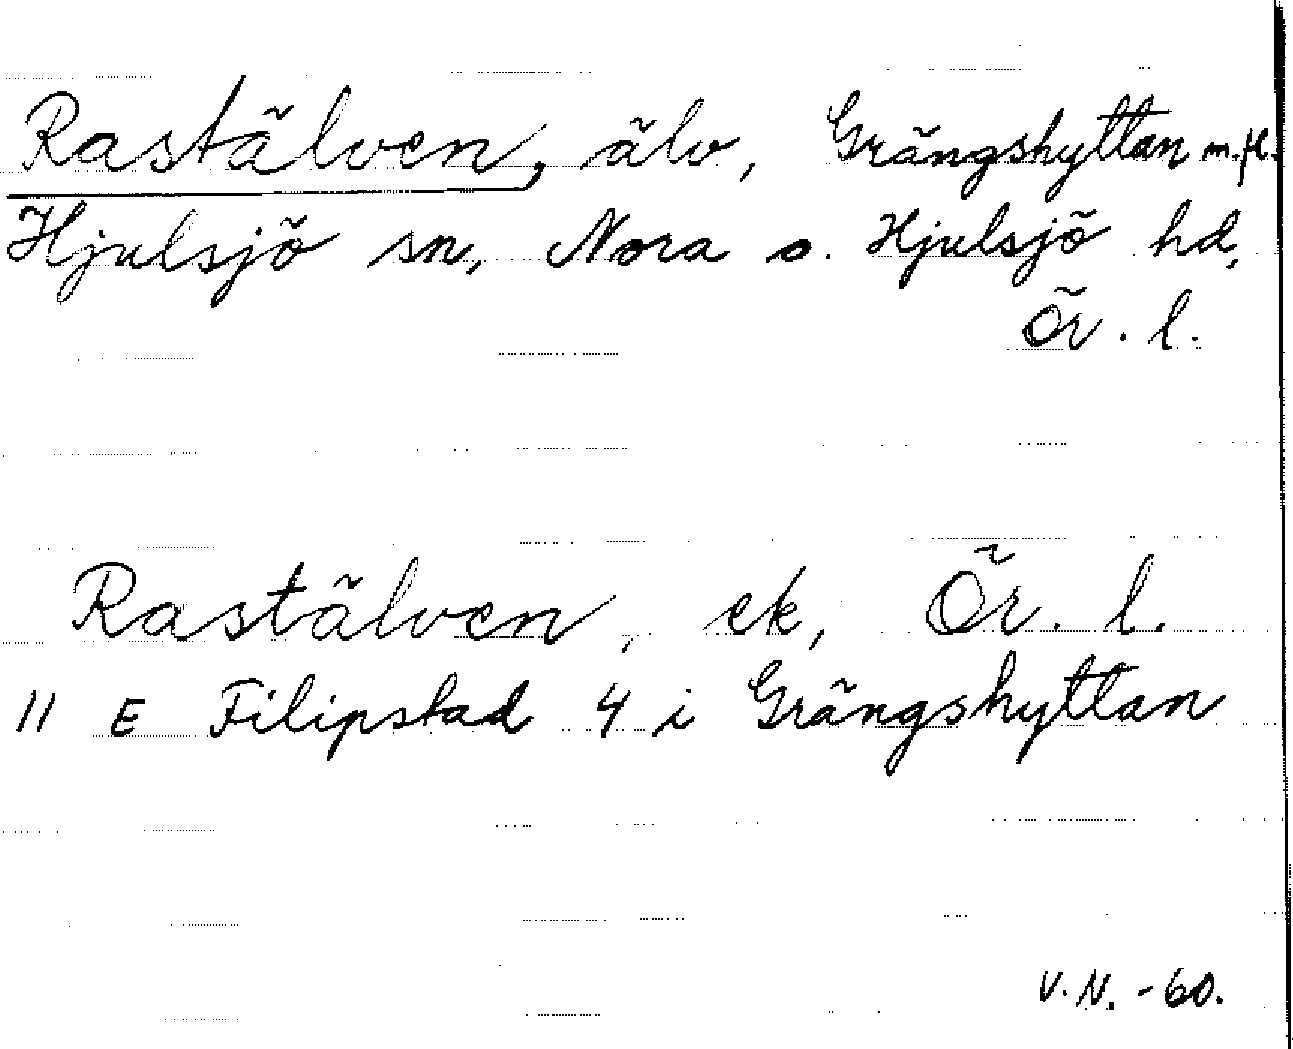 Rastälven, älv, Grängshyttan m.fl.
Hjulsjö sn, Nora o. Hjulsjö hd,
Ör. l.
Rastälven, ek, Ör. l.
11 E Filipstad 4 i Grängshyttan
V.N. -60.